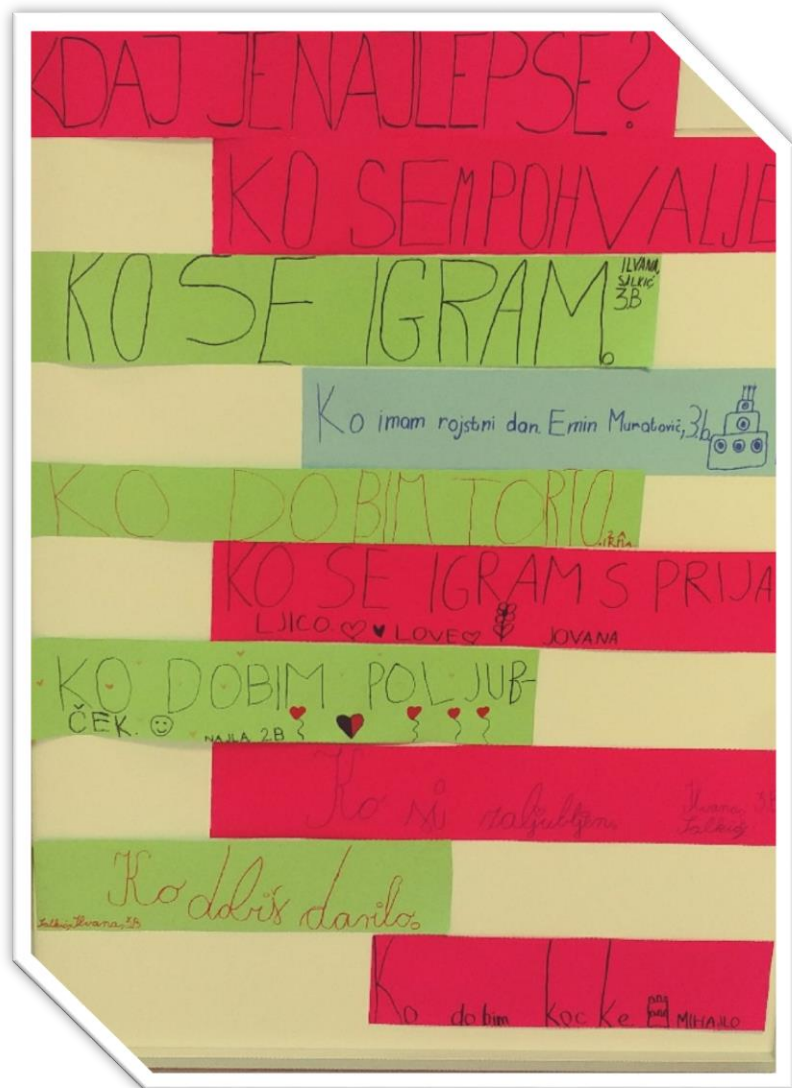 KDAJ JE NAJLEPSE?
KO SEM POHVALJE
KO SE IGRAM.
ILVANA,
SALKIĆ
3.B
Ko imam rojstni dan. Emin Muratović, 3.b
KO DOBIM TORTO.
KO SE IGRAM S PRIJA
LJICO. LOVE JOVANA
KO DOBIM POLJUB-
ČEK. NAJLA 2.B
Ko si zaljubljen.
Ilvana, 3.B
Salkić
Ko dobiš darilo.
Salkić, Ilvana, 3.B
Ko dobim kocke MIHAJLO